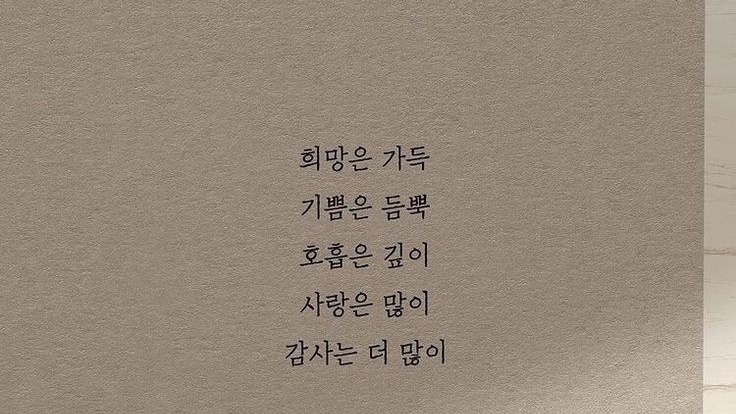 희망은 가득
기쁨은 듬뿍
호흡은 깊이
사랑은 많이
감사는 더 많이